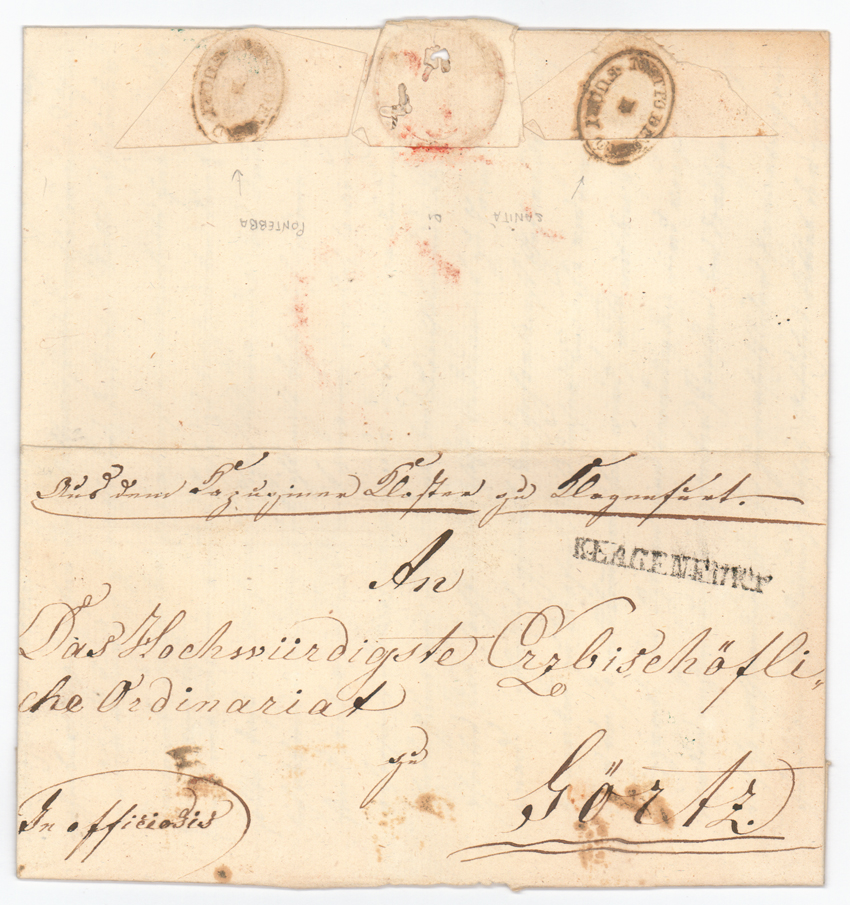 PONTEBBA
DI
SANITÀ
Aus dem Kapuziner Kloster zu Klagenfurt.
KLAGENFURT
An
Das Hochwürdigste Erzbischöfli-
che Ordinariat
zu
Görtz.
In officiosis